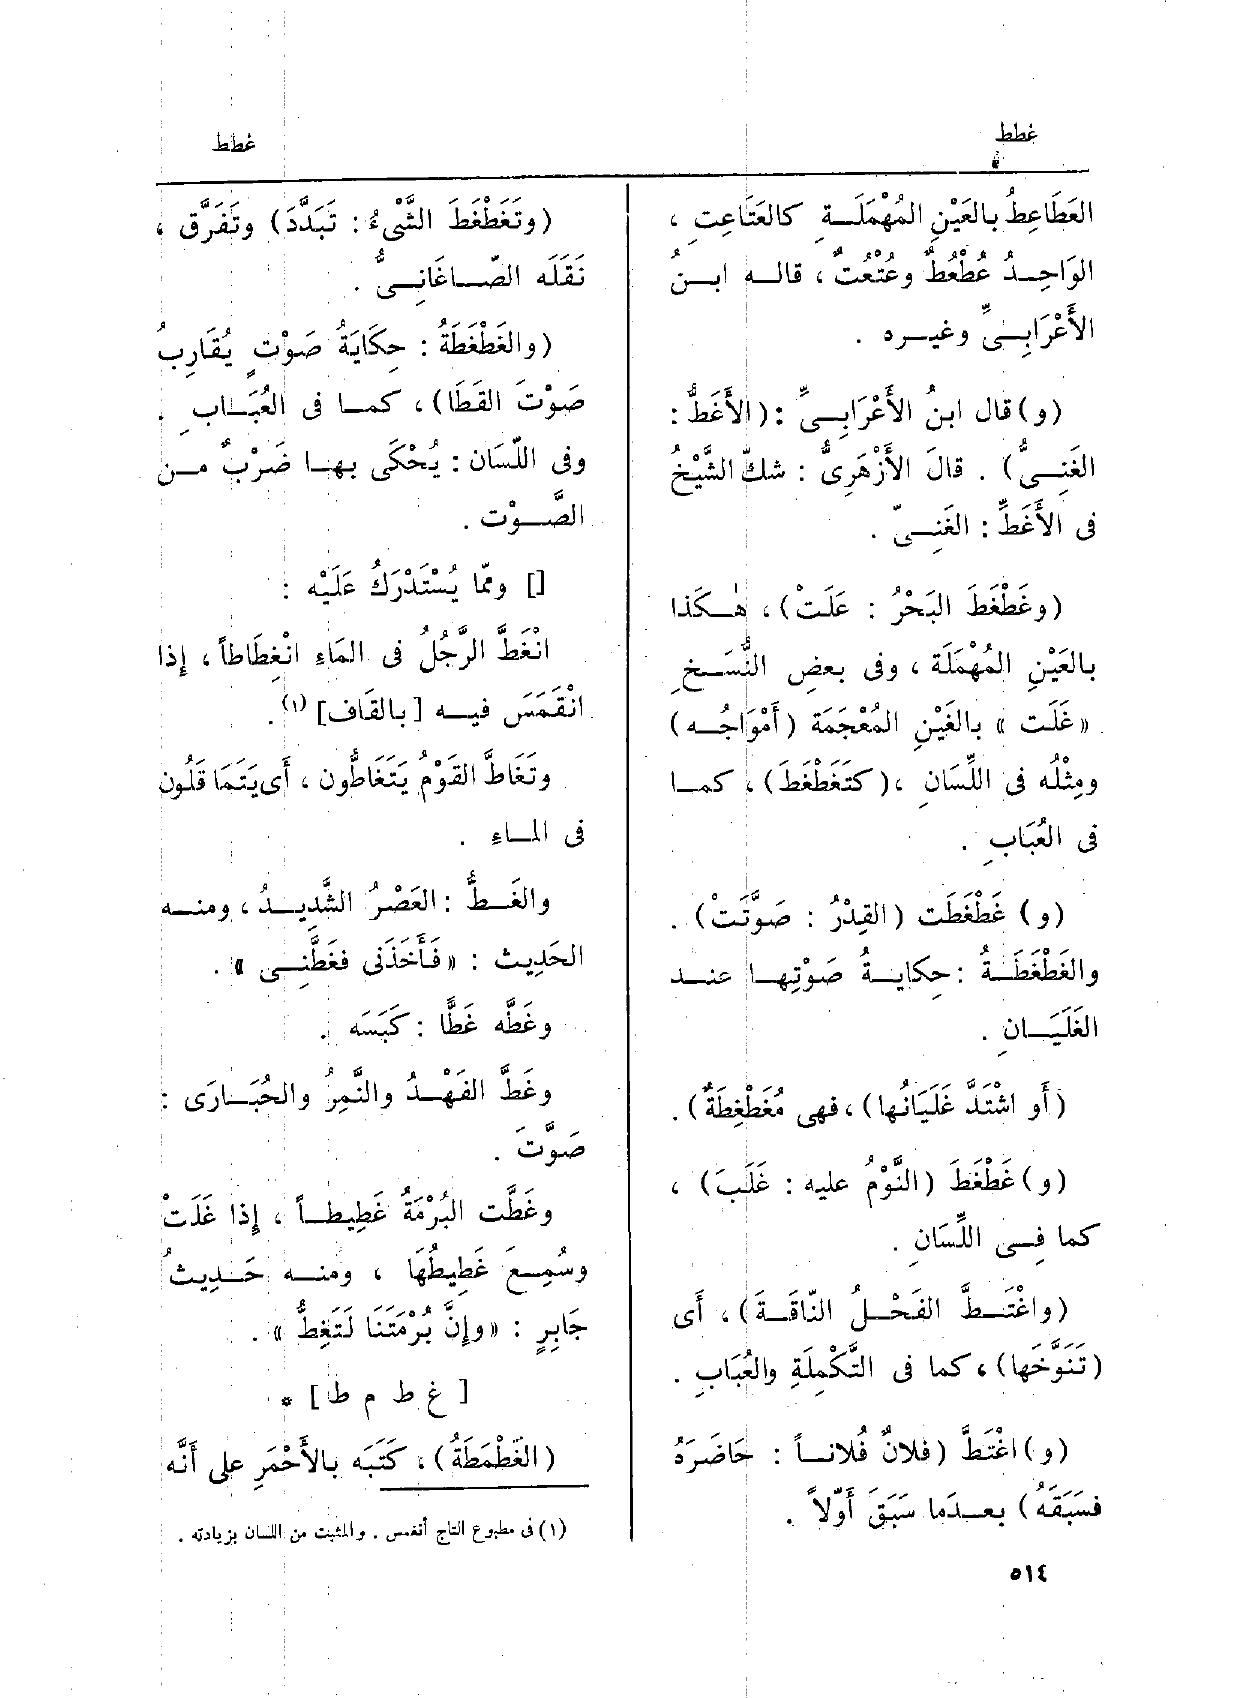 غطط
غطط
العَطَاعِطُ بالعَيْنِ المُهْمَلَـةِ كالعَتَاعِتِ ،
الوَاحِـدُ عُطْعُطٌ وعُتْعُتٌ ، قالـه ابـنُ
الأَعْرَابِـىِّ وغيـره .
(و) قال ابنُ الأَعْرَابِـىِّ : (الأَغَطُّ :
الغَنِـىُّ) . قالَ الأَزْهَرِىُّ : شكّ الشَّيْخُ
فى الأَغَطِّ : الغَنِـىّ .
(وغَطْغَطَ البَحْرُ : عَلَتْ) ، هٰـكَذا
بالعَيْنِ المُهْمَلَة ، وفى بعضِ النُّسَـخِ
« غَلَت » بالغَيْنِ المُعْجَمَة (أَمْوَاجُـه)
ومِثْلُه فى اللِّسَانِ ، (كتَغَطْغَطَ) ، كمـا
فى العُبَابِ .
(و) غَطْغَطَت (القِدْرُ : صَوَّتَتْ) .
والغَطْغَطَـةُ : حِكايـةُ صَوْتِهـا عنـد
الغَلَيَـانِ .
(أَو اشْتَدَّ غَلَيَانُها) ، فهى مُغَطْغِطَةٌ .
(و) غَطْغَطَ (النَّوْمُ عليه : غَلَبَ) ،
كما فِـى اللِّسَانِ .
(واغْتَـطَّ الفَحْـلُ النّاقَـةَ) ، أَى
(تَنَوَّخَها) ، كما فى التَّكْمِلَةِ والعُبَابِ .
(و) اغْتَطَّ (فلانٌ فُلانـاً : حَاضَرَهُ
فسَبَقَهُ) بعـدَما سَبَقَ أَوّلاً .
(وتَغَطْغَطَ الشَّىْءُ : تَبَدَّدَ) وتَفَرَّق ،
نَقَلَه الصّـاغَانِـىُّ .
(والغَطْغَطَةُ : حِكَايَةُ صَوْتٍ يُقَارِبُ
صَوْتَ القَطَا) ، كمـا فى العُبَـابِ .
وفى اللّسَان : يُحْكَى بهـا ضَرْبٌ مـن
الصَّـوْت .
[] وممّا يُسْتَدْرَكُ عَلَيْه :
انْغَطَّ الرَّجُلُ فى المَاءِ انْغِطَاطاً ، إِذا
انْقَمَسَ فيـه [بالقَاف] (١) .
وتَغَاطَّ القَوْمُ يَتَغَاطُّون ، أَى يَتَمَاقَلُون
فى المـاءِ .
والغَـطُّ : العَصْرُ الشَّدِيـدُ ، ومنـه
الحَدِيث : « فَأَخَذَنى فغَطَّنِـى » .
وغَطَّه غَطًّا : كَبَسَه .
وغَطَّ الفَهْـدُ والنَّمِرُ والحُبَـارَى :
صَوَّتَ .
وغَطَّت البُرْمَةُ غَطِيطـاً ، إِذا غَلَتْ
وسُمِـعَ غَطِيطُهَا ، ومنـه حَـدِيثُ
جَابِرٍ : « وإِنَّ بُرْمَتَنَا لَتَغِطُّ » .
[ غ ط م ط ] *
(الغَطْمَطَةُ) ، كَتَبَه بالأَحْمَرِ على أَنَّه
(١) فى مطبوع التاج أنغمس . والمثبت من اللسان بزيادته .
٥١٤